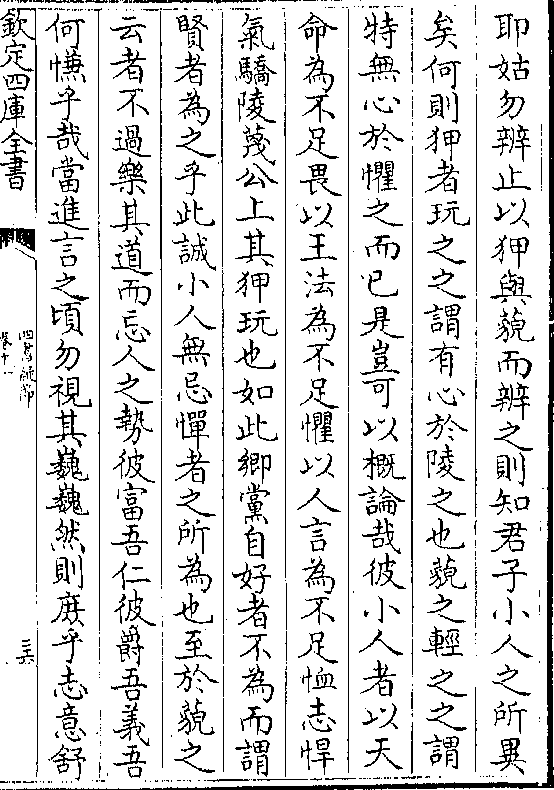 耶姑勿辨止以狎與藐而辨之則知君子小人之所異
矣何則狎者玩之之謂有心於陵之也藐之輕之之謂
特無心於懼之而已是豈可以概論哉彼小人者以天
命為不足畏以王法為不足懼以人言為不足恤志悍
氣驕陵蔑公上其狎玩也如此鄉黨自好者不為而謂
賢者為之乎此誠小人無忌憚者之所為也至於藐之
云者不過樂其道而忘人之勢彼富吾仁彼爵吾義吾
何慊乎哉當進言之頃勿視其巍巍然則庶乎志意舒
欽定四庫全書
四書
卷十一
三六